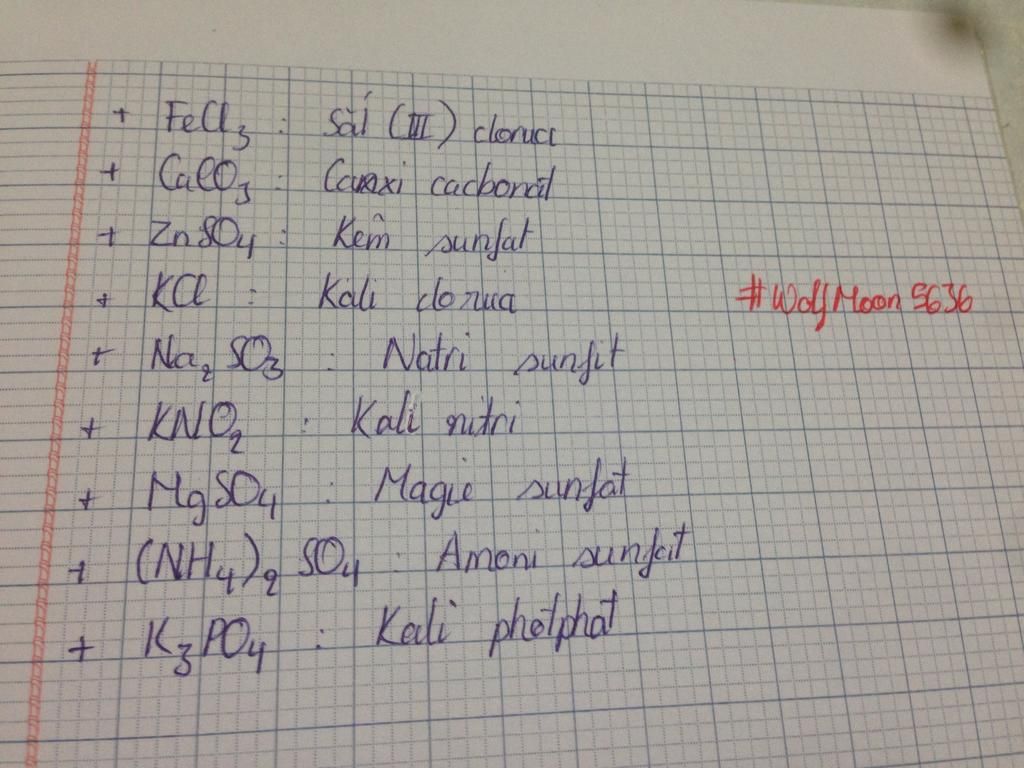 + FeCl3 : Sắt (III) clorua
+ CaCO3 : Canxi cacbonat
+ ZnSO4 : Kẽm sunfat
+ KCl : Kali clorua
#WolfMoon5636
+ Na2SO3 : Natri sunfit
+ KNO2 : Kali nitri
+ MgSO4 : Magie sunfat
+ (NH4)2 SO4 : Amoni sunfat
+ K3PO4 : Kali photphat